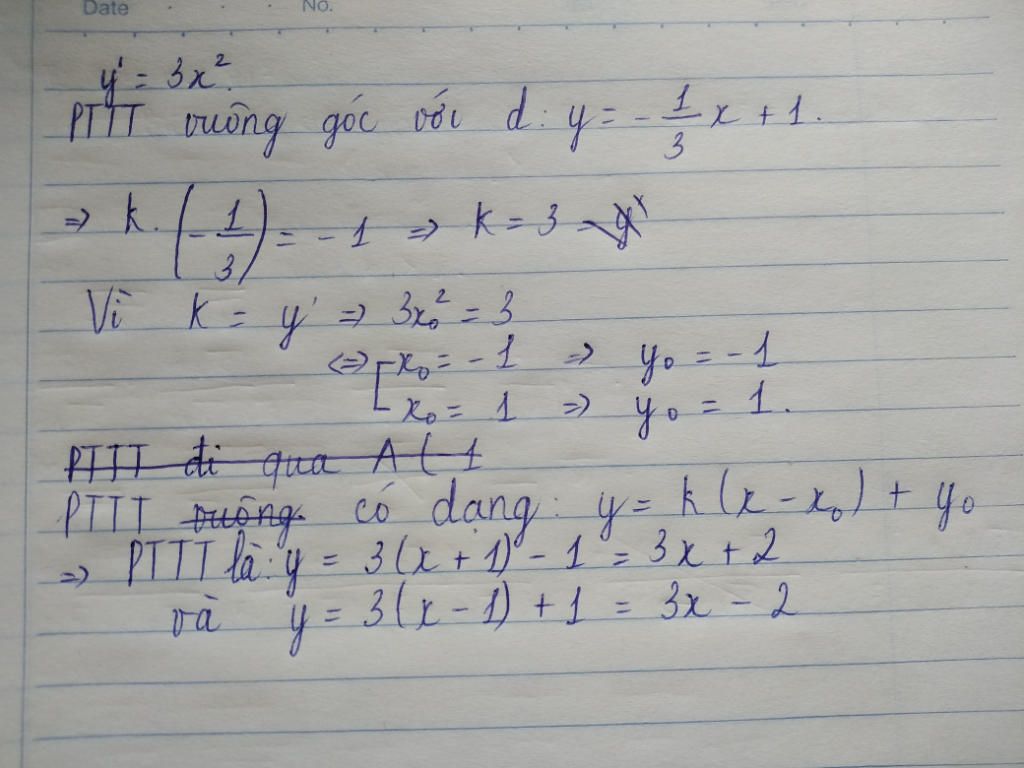 Date No.
y' = 3x².
PTTT vuông góc với d: y = -1/3 x + 1.
⇒ k. (-1/3) = -1 ⇒ k = 3
Vì k = y' ⇒ 3x₀² = 3
⇔ [ x₀ = -1 ⇒ y₀ = -1
x₀ = 1 ⇒ y₀ = 1.
PTTT đi qua A ( 1
PTTT vuông có dạng: y = k(x - x₀) + y₀
⇒ PTTT là: y = 3(x + 1) - 1 = 3x + 2
và y = 3(x - 1) + 1 = 3x - 2